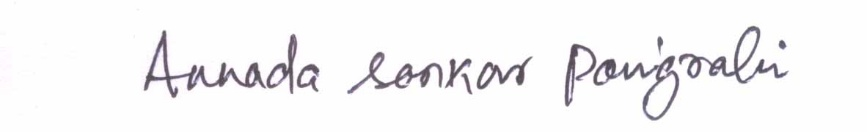 Annada Sankar Panigrahi